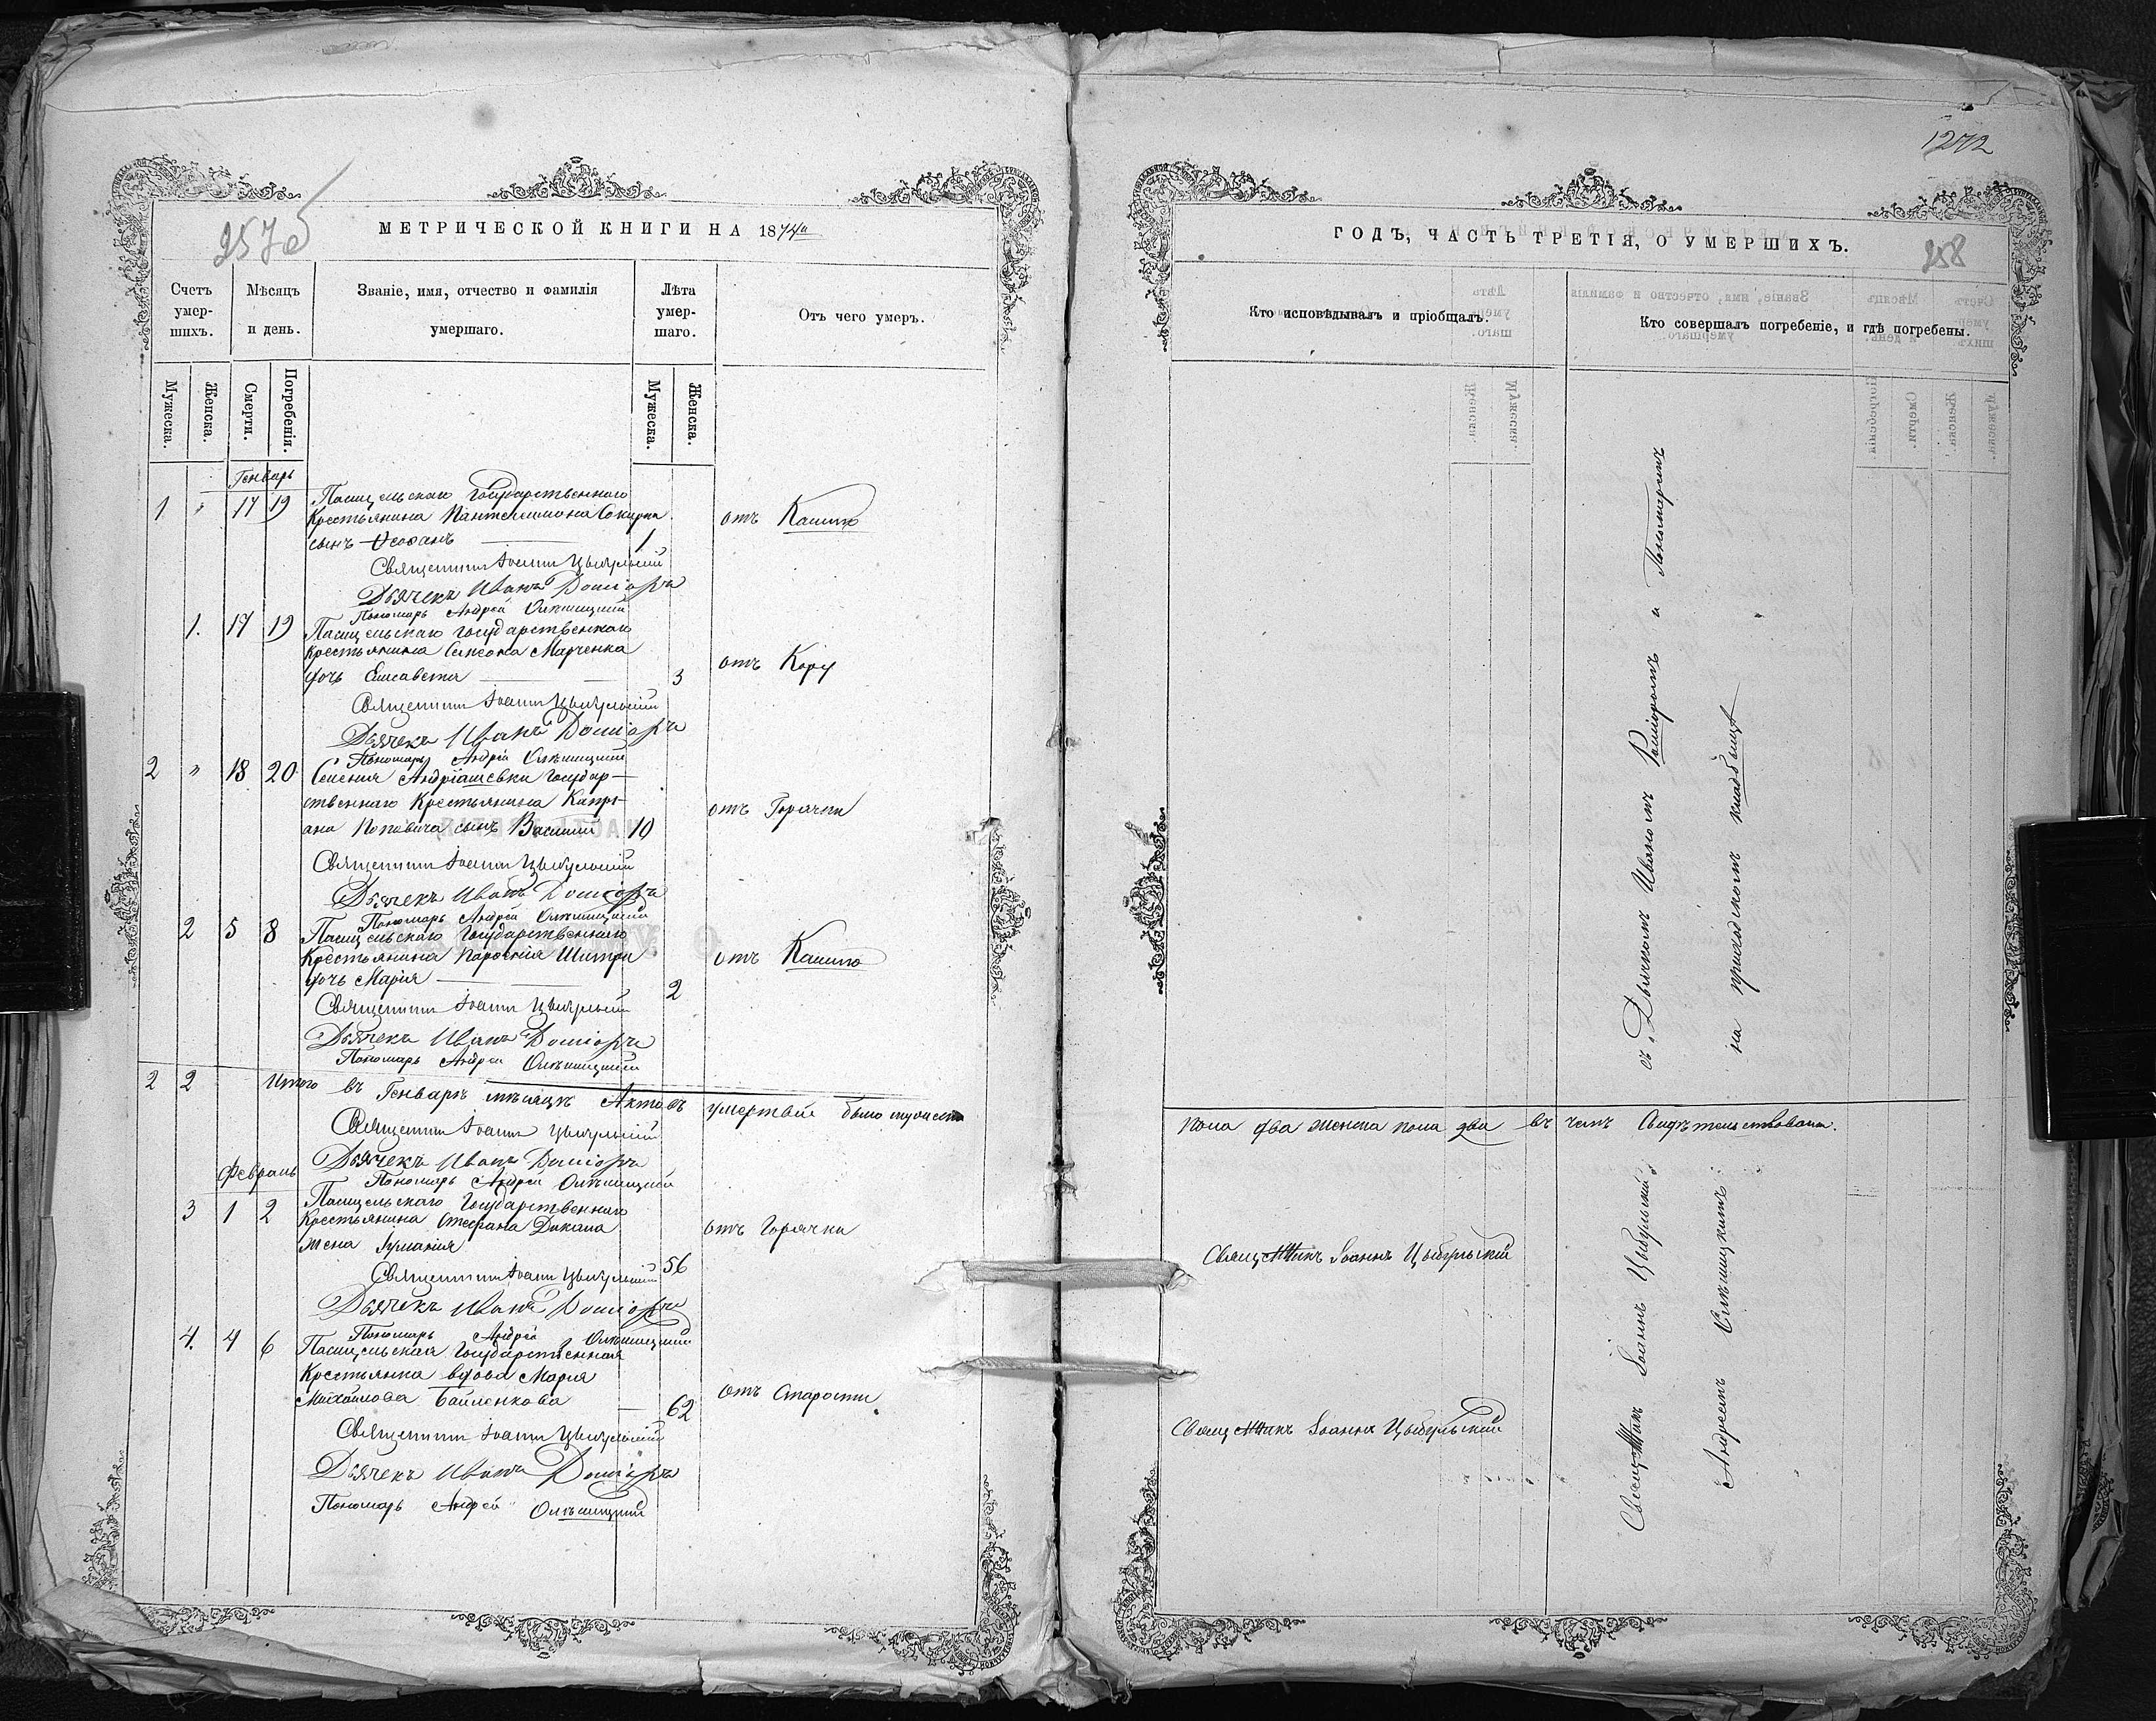 257б
МЕТРИЧЕСКОЙ КНИГИ НА 1874й
Счетъ умер-шихъ.
Мѣсяцъ и день.
Званіе, имя, отчество и фамилія умершаго.
Лѣта умер-шаго.
Отъ чего умеръ.
Мужеска.
Женска.
Смерти.
Погребенія.
Мужеска.
Женска.
Генварь
1 " 17 19 Пасицельскаго Государственнаго
Крестьянина Пантелимона
сынъ Ѳеофанъ 1
отъ Кашлю
Священникъ Іоаннъ Цыбульскій
Дьячекъ Иванъ
Пономарь Андрей
1. 17 19 Пасицельскаго Государственнаго
Крестьянина Симеона Марченка
дочь Елисавета 3
отъ Кору
Священникъ Іоаннъ Цыбульскій
Дьячекъ Иванъ
Пономарь Андрей
2 " 18 20 Селенія Андріашевки Государ-
ственнаго Крестьянина Капрі-
ана Поповича сынъ Василій 10
отъ Горячки
Священникъ Іоаннъ Цыбульскій
Дьячекъ Иванъ
Пономарь Андрей
2 5 8 Пасицельскаго Государственнаго
Крестьянина
дочь Марія 2
отъ Кашлю
Священникъ Іоаннъ Цыбульскій
Дьячекъ Иванъ
Пономарь Андрей
2 2 Итого въ Генварѣ мѣсяцѣ Актовъ умертвій было мужеска
Священникъ Іоаннъ Цыбульскій
Дьячекъ Иванъ
Пономарь Андрей
Февраль
3 1 2 Пасицельскаго Государственнаго
Крестьянина Стефана
жена Іуліанія 56
отъ Горячки
Священникъ Іоаннъ Цыбульскій
Дьячекъ Иванъ
Пономарь Андрей
4. 4 6 Пасицельская Государственная
Крестьянка вдова Марія
Михайлова 62
отъ Старости.
Священникъ Іоаннъ Цыбульскій
Дьячекъ Иванъ
Пономарь Андрей
1272
ГОДЪ, ЧАСТЬ ТРЕТІЯ, О УМЕРШИХЪ.
258
Кто исповѣдывалъ и пріобщалъ.
Кто совершалъ погребеніе, и гдѣ погребены.
пола два женска пола два въ чемъ Свидѣтельствовали.
Священникъ Іоаннъ Цыбульскій
Священникъ Іоаннъ Цыбульскій
Священникъ Іоаннъ Цыбульскій
съ Дьячкомъ Иваномъ и Пономаремъ
Андреемъ
на приходскомъ кладбищѣ